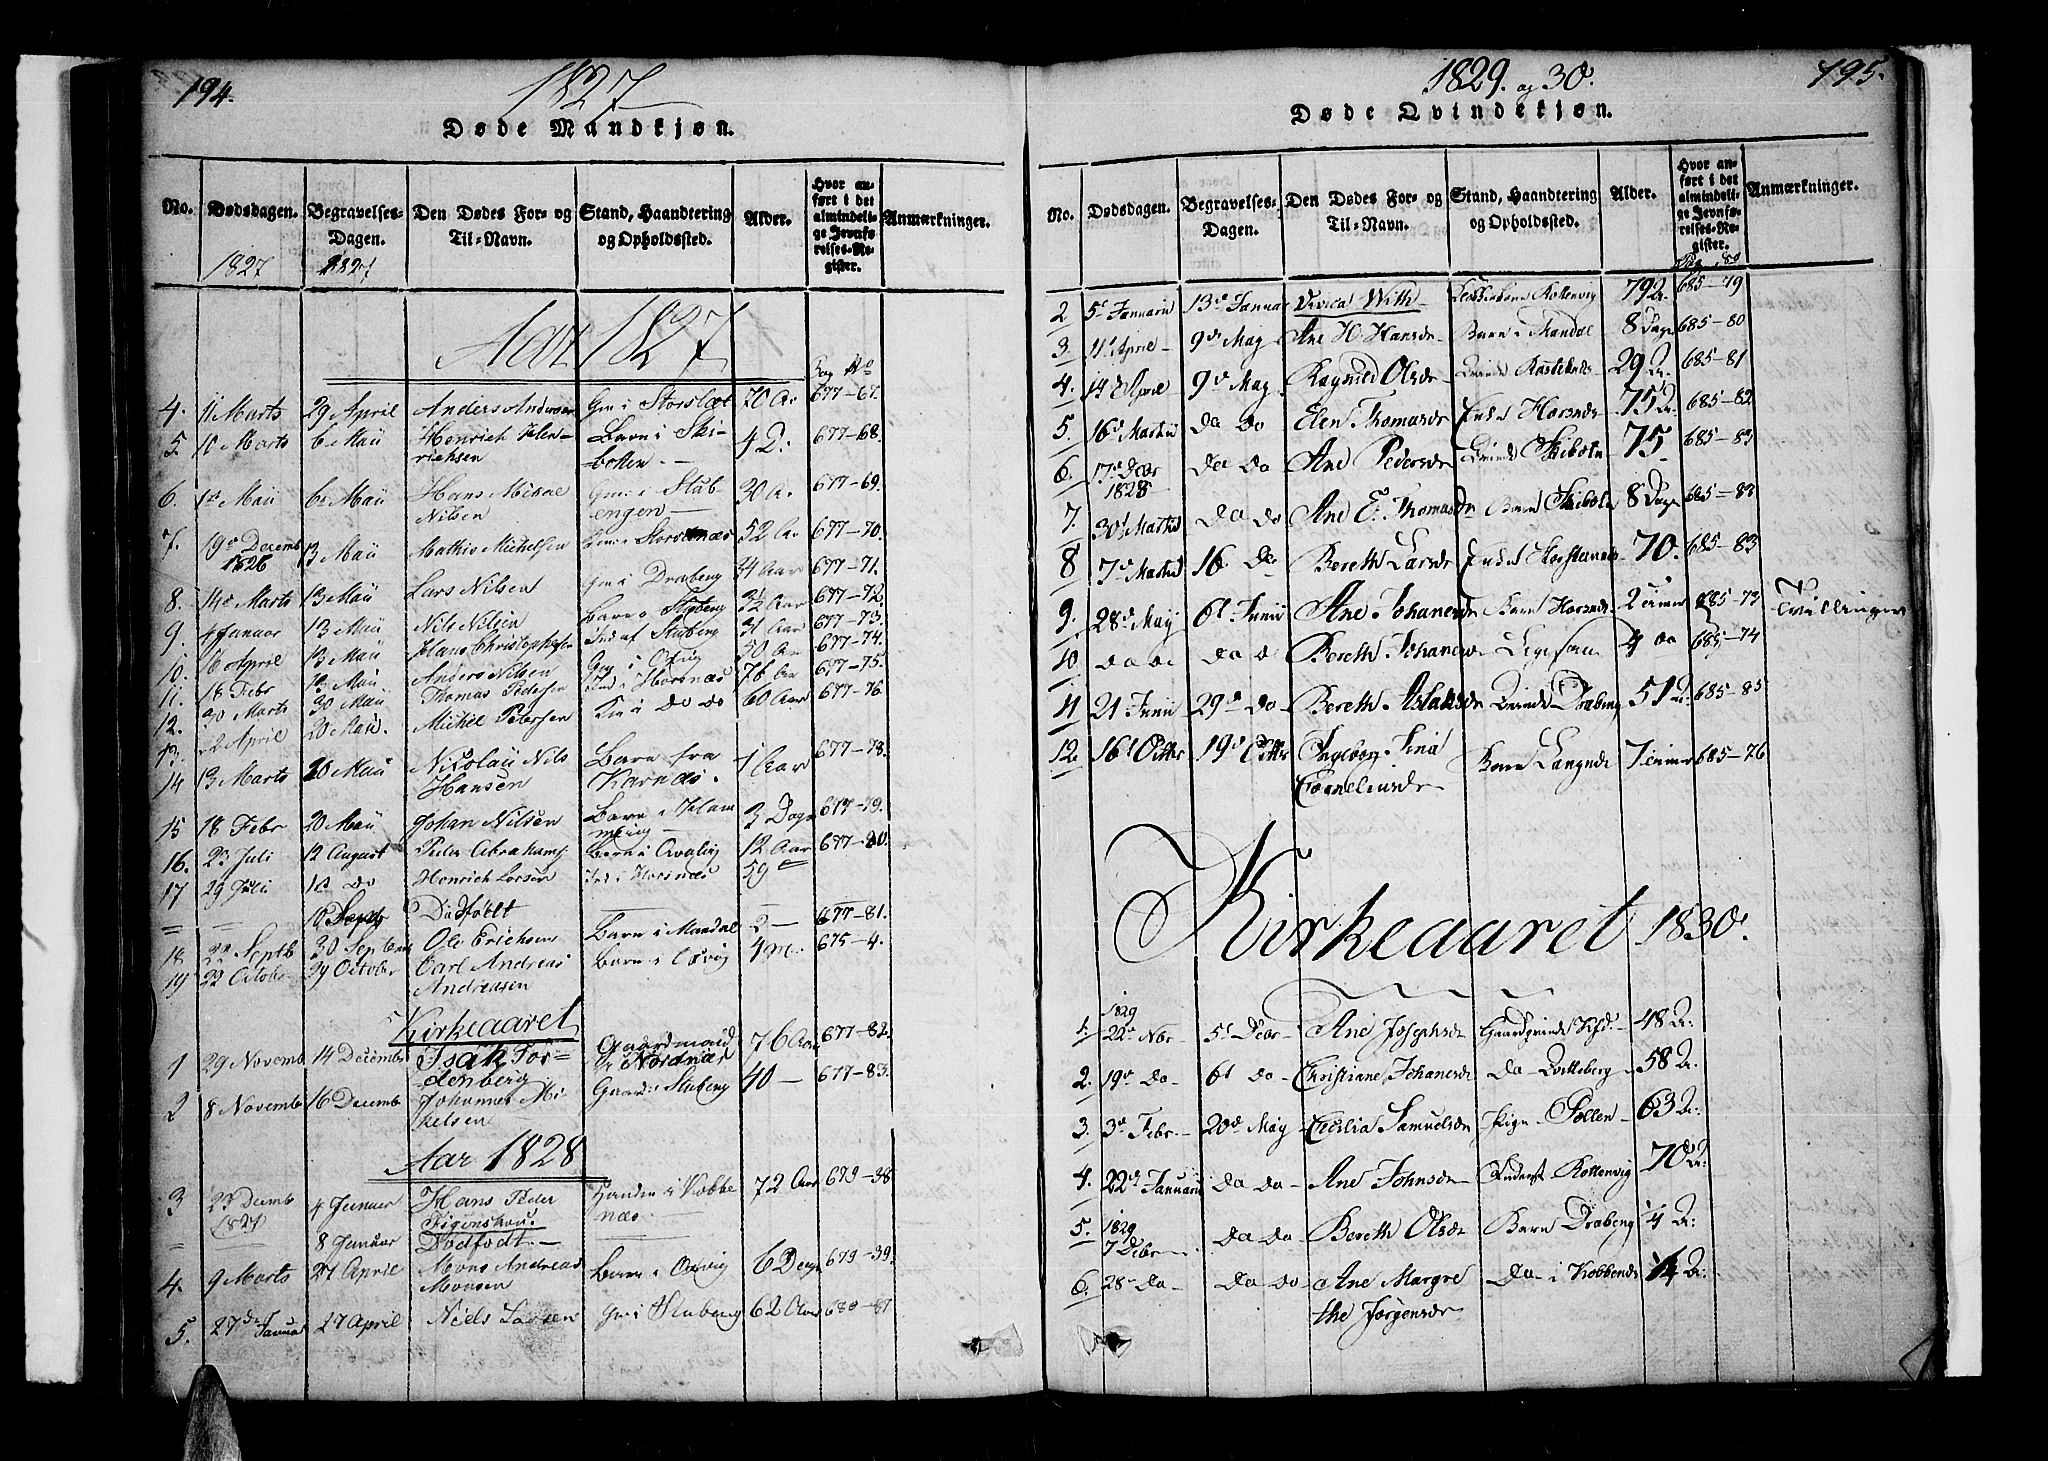 194.
1827
Døde Mandkjøn.
No.
Dødsdagen.
Begravelses-Dagen.
Den Dødes For- og Til-Navn.
Stand, Haandtering og Opholdssted.
Alder.
Hvor anført i det almindelige Jevnførelses-Register.
Anmærkninger.
1827 1827
Aar 1827
Pag No
4. 11 Marts 29 April Anders Andersen Gm i 70 Aar 677-67.
5. 10 Marts 6 Maii Henrich Henrichsen Barn i Skibotten 4 D: 677-68.
6. 1de Maii 6te Maii Hans Mickal Nilsen Gm: i Stubengen 30 A. 677-69.
7. 19de Decemb 1826 13 Maii Mathis Michelsen Gm: i Storstenæs 52 Aar 677-70.
8. 14de Marts 13 Maii Lars Nilsen Gm i Draberg 34 Aar 677-71.
9. 4 Januar 13 Maii Nils Nilsen Barn i 3½ Aar 677-72.
10. 16 April 13 Maii Hans Christophersen Ind af Stuberg 31 Aar 677-73.
11. 18 Febr 13 Maii Anders Nilsen 50 Aar 677-74.
12. 30 Marts 30 Maii Thomas Pedersen Ind i Horsnæs 76 Aar 677-75.
13. 22 April 20 Maii. Michel Petersen do do 60 Aar 677-76
14 13 Marts 20 Maii Nikolaii Nils Hansen Barn fra Karnæs. 1 Aar 677-78.
15 18 Febr 20 Maii Johan Nilsen Barn i 3 Dage 677-79.
16. 23 Juli 12 August Peder Abrahams Barn i 12 Aar 677-80.
17 29 Juli 12 do Henrich Larsen Ind i Horsnæs 59
= = 10 Septb Dødfødt
18 22 Septb 30 September Ole Erichsen Barn i Mandal 2 - 677-81.
19 22 Octobr 29 October Carl Andreas Andreasen Barn i Oxvig 4 M. 675-4.
Kirkeaaret
1 29 Novemb 14 Decembr Isak Fordenberg Gaardmand i Nordnæs 76 Aar 677-82.
2 8 Novemb 16 Decemb Johannes Mikelsen Gaard i Stuberg 40 - 677-83.
Aar 1828
3 23 Decemb (1827) 4 Januar Hans Peder Figenskou. i Kobbenæs. 72 Aar 679-38
- 8 Januar Dødfødt -
4. 9 Marts 27 April Mons Andreas Monsen Barn i Oxvig 6 Dage 679-39.
5. 27de Januar 27 April Niels Larsen Gm i Stuberg 62 Aar 680-87
1829. og 30.
195.
Døde Qvindekjøn.
No.
Dødsdagen.
Begravelses-Dagen.
Den Dødes For- og Til-Navn.
Stand, Haandtering og Opholdssted.
Alder.
Hvor anført i det almindelige Jevnførelses-Register.
Anmærkninger.
2 5te Januarii 13de Januar With Kottenvig 79 A. 685-79
3 11te April 9de May Ane H. Hansdr Barn i Mandal 8 Dage 685-80
4. 14de April 9de May Ragnild Olsdr 29 A. 685-81
5. 16de Martii Da Do Elen Thomasdr Horsnæs 75 A. 685-82
6. 17de Decbr 1828 Da Do Ane Pedersdr Skibotn 75. 685-83
7. 30te Martii Da Do Ane E. Thomasdr Barn Skibotn 8 Dage 685-83
8 7de Martii 16 Do Bereth Larsdr 70. 685-83
9. 28de May 6te Junii Ane Johanesdr Barn Horsnæs 2 Timer 685-73 Tvillinger
10 do do Da do Bereth Johanesdr Ligesom 4 Do 685-74
11 21 Junii 29de Do Bereth Aslaksdr Draberg 51 A. 685-85
12. 16te Octbr 19de Octbr Ingeborg Lina Corneliusdr Barn Langnæs 7 Timer 685-76
Kirkeaaret 1830.
1. 1829 22de Nbr. 5te Debr Ane Josephsdr Gaardqvinde 48 A:
2. 19de Do 6te Do Christiane Johanesdr Do 58 A.
3. 3de Febr 20de May Cecilia Samuelsdr Pige Pollen 63 A:
4. 22de Januarii Da Do Ane Johnsdr Kottenvig 70 A:
5. 1829 7 Debr Da Do Bereth Olsdr Barn Draberg 4 A:
6. 28de Do Da Do Ane Margrethe Jørgensdr Do i Kobbenæs A: